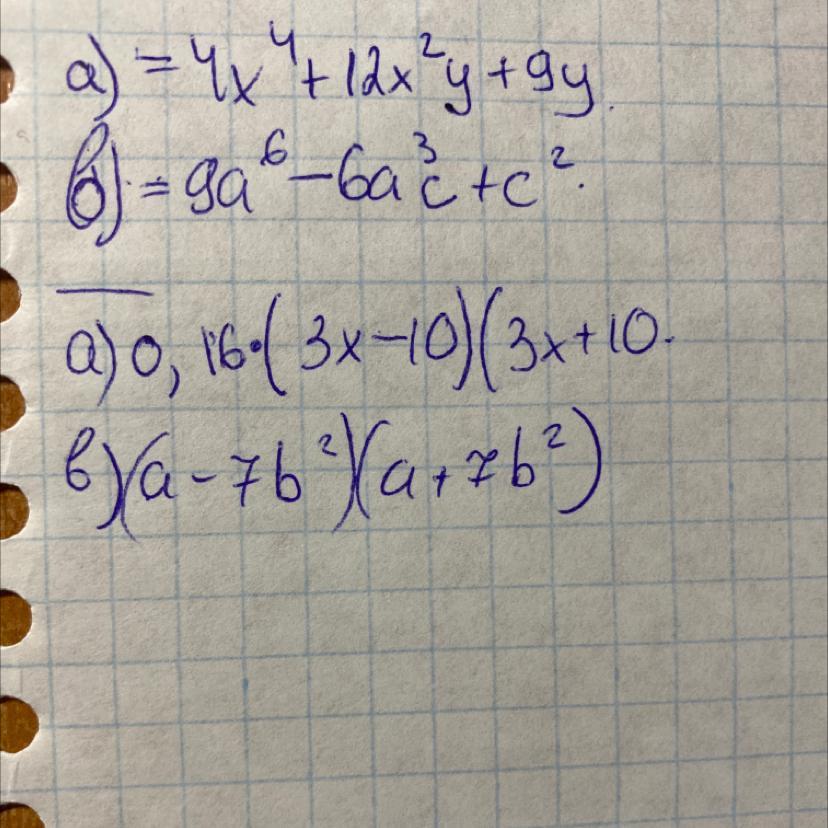 а) = 4x⁴ + 12x²y + 9y.
в) = 9a⁶ - 6a³c + c².
а) 0,16·(3x - 10)(3x + 10.
в) (a - 7b²)(a + 7b²)